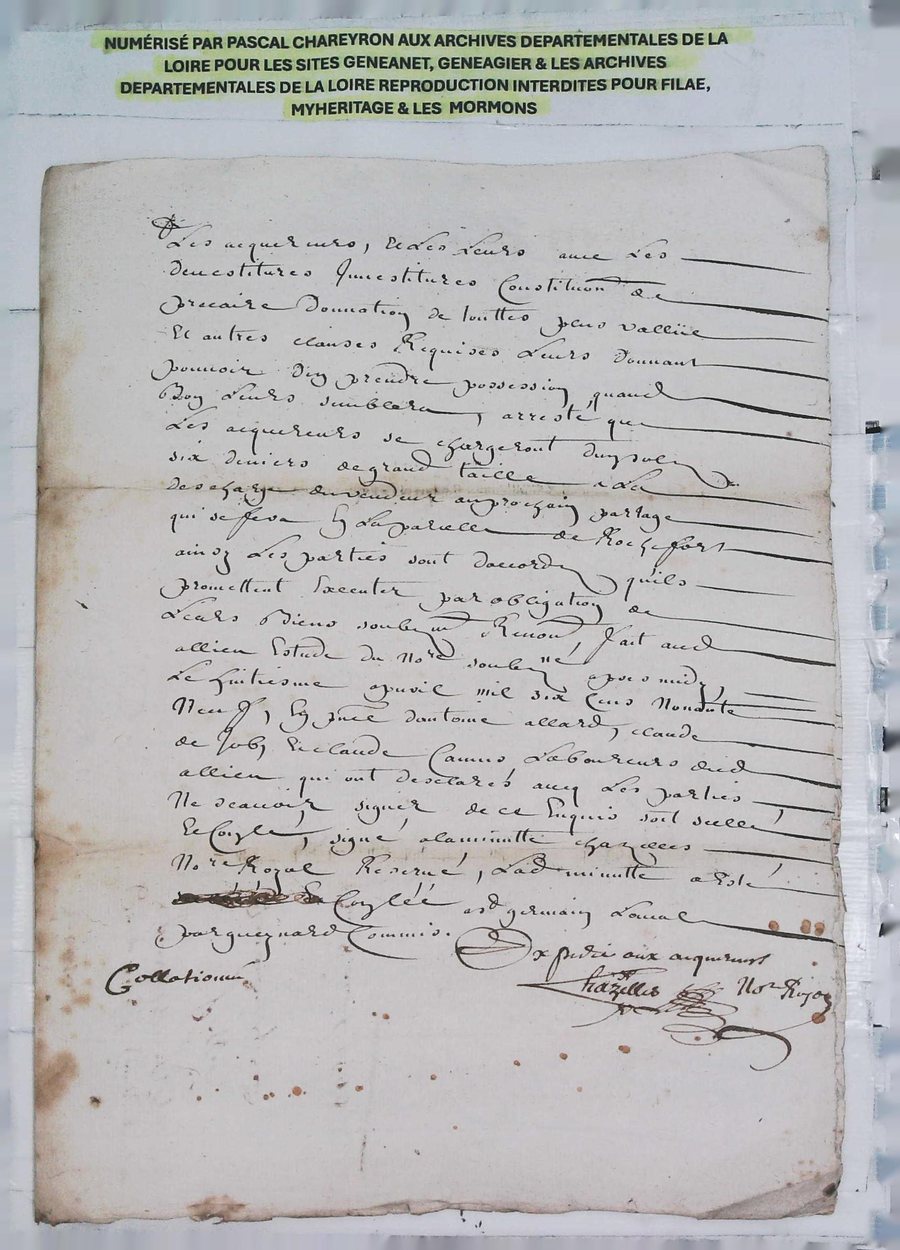 NUMÉRISÉ PAR PASCAL CHAREYRON AUX ARCHIVES DEPARTEMENTALES DE LA
LOIRE POUR LES SITES GENEANET, GENEAGIER & LES ARCHIVES
DEPARTEMENTALES DE LA LOIRE REPRODUCTION INTERDITES POUR FILAE,
MYHERITAGE & LES MORMONS
Les acquereurs, Et Les Leurs avec Les
devestitures Jnvestitures Constitution de
precaire Donnation de touttes plus vallüe
Et autres clauses Requises Leurs Donnant
pouvoir Den prendre possession quand
Bon Leurs semblera, arresté que
Les acquereurs se chargeront dun sol
six deniers de grand taille a La
descharge du vendeur au prochain partage
qui se fera En La parcelle de Rochefort
ainsy Les parties sont daccord quils
promettent Executer par obligation de
Leurs Biens soubm Renon fait aud
allieu Estude du Nore soubne apres midy
Le huitiesme apvril mil six Cens Nonante
Neuf, En pnce dantoine allard, claude
de Et claude Camus Laboureurs dud
allieu qui ont desclarés avecq Les parties
Ne scavoir signer de ce Enquis soit scellé
Et Conlé, signé a la minutte chazelles
Nore Royal Reservé, Lad minutte a Esté
Conlée a st germain Laval
par gueynard Commis.
Expedié aux acquereurs
Collationné
Chazelles Nore Royal